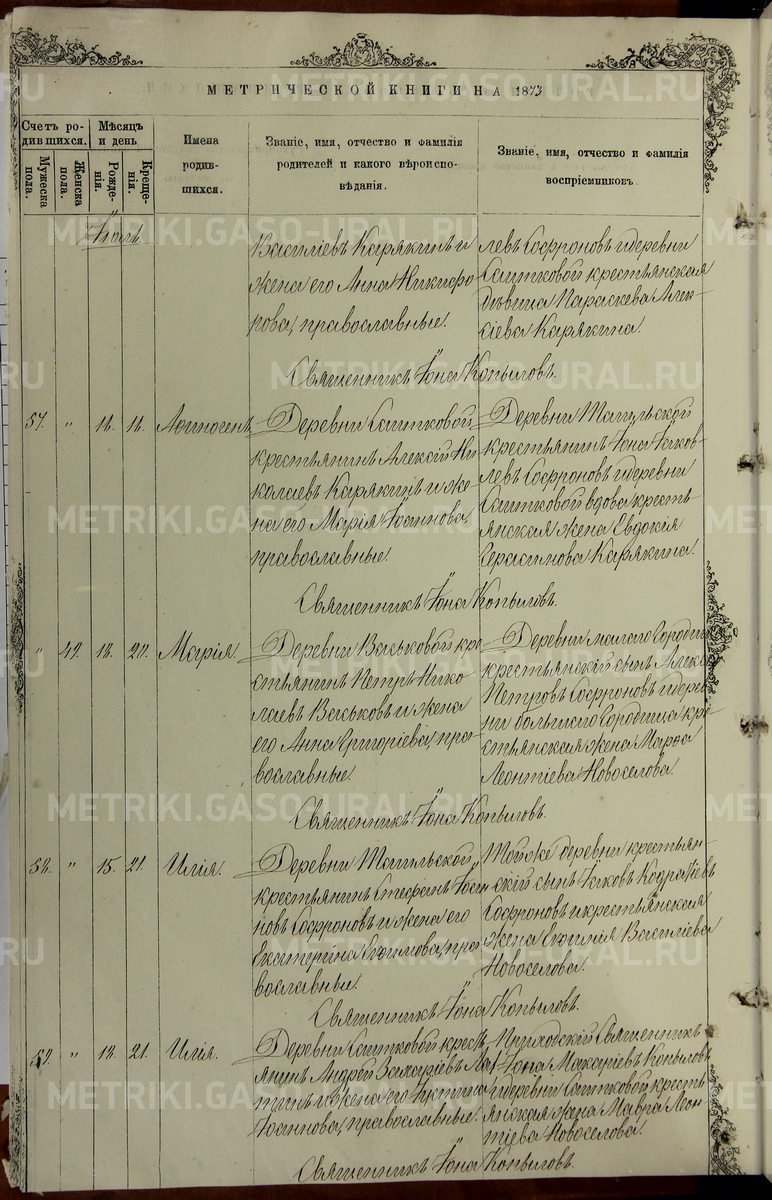 МЕТРИЧЕСКОЙ КНИГИ НА 1873
Счетъ ро-
дившихся.
Мужеска пола.
Женска пола.
Мѣсяцъ
и день
Рожде-
нія.
Креще-
нія.
Имена
родив-
шихся.
Званіе, имя, отчество и фамилія
родителей и какого вѣроиспо-
вѣданія.
Званіе, имя, отчество и фамилія
воспріемниковъ.
Іюль.
Васильевъ Карякинъ и
жена его Анна Никифо
рова, православные.
левъ Софроновъ и деревни
Ситковой крестьянская
дѣвица Параскева Алек-
сіева Карякина.
Священникъ Іона Копыловъ.
57. " 18. Аѳиногенъ.
Деревни Ситковой
крестьянинъ Алексій Ни
колаевъ Карякинъ и же
на его Марія Іоаннова,
православные.
Деревни Тагильской
крестьянинъ Іона Іаков-
левъ Софроновъ и деревни
Ситковой вдова кресть-
янская жена Евдокія
Герасимова Карякина.
Священникъ Іона Копыловъ.
" 49. Марія.
Деревни Васьковой кре
стьянинъ Петръ Нико
лаевъ Васьковъ и жена
его Анна Григоріева, пра
вославные.
Деревни малаго Городища
крестьянскій сынъ
Петровъ Софроновъ и дерев
ни большаго Городища кре
стьянская жена Марѳа
Леонтіева Новоселова.
Священникъ Іона Копыловъ.
58. " 15. 21. Илія.
Деревни Тагильской
крестьянинъ Стефанъ Іоан
новъ Софроновъ и жена его
Екатерина Евѳимова, пра
вославные.
Той же деревни крестьян-
скій сынъ Іаковъ Кодратіевъ
Софроновъ и крестьянская
жена Евѳимія Василіева
Новоселова.
Священникъ Іона Копыловъ.
59. " 18. 21. Илія.
Деревни Ситковой кресть
янинъ Андрей Захаріевъ
и жена его Іустина
Іоаннова, православные.
Приходскій Священникъ
Іона Макаріевъ Копыловъ
и деревни Ситковой кресть
янская жена Мавра Леон
тіева Новоселова.
Священникъ Іона Копыловъ.
METRIKI.GASO-URAL.RU